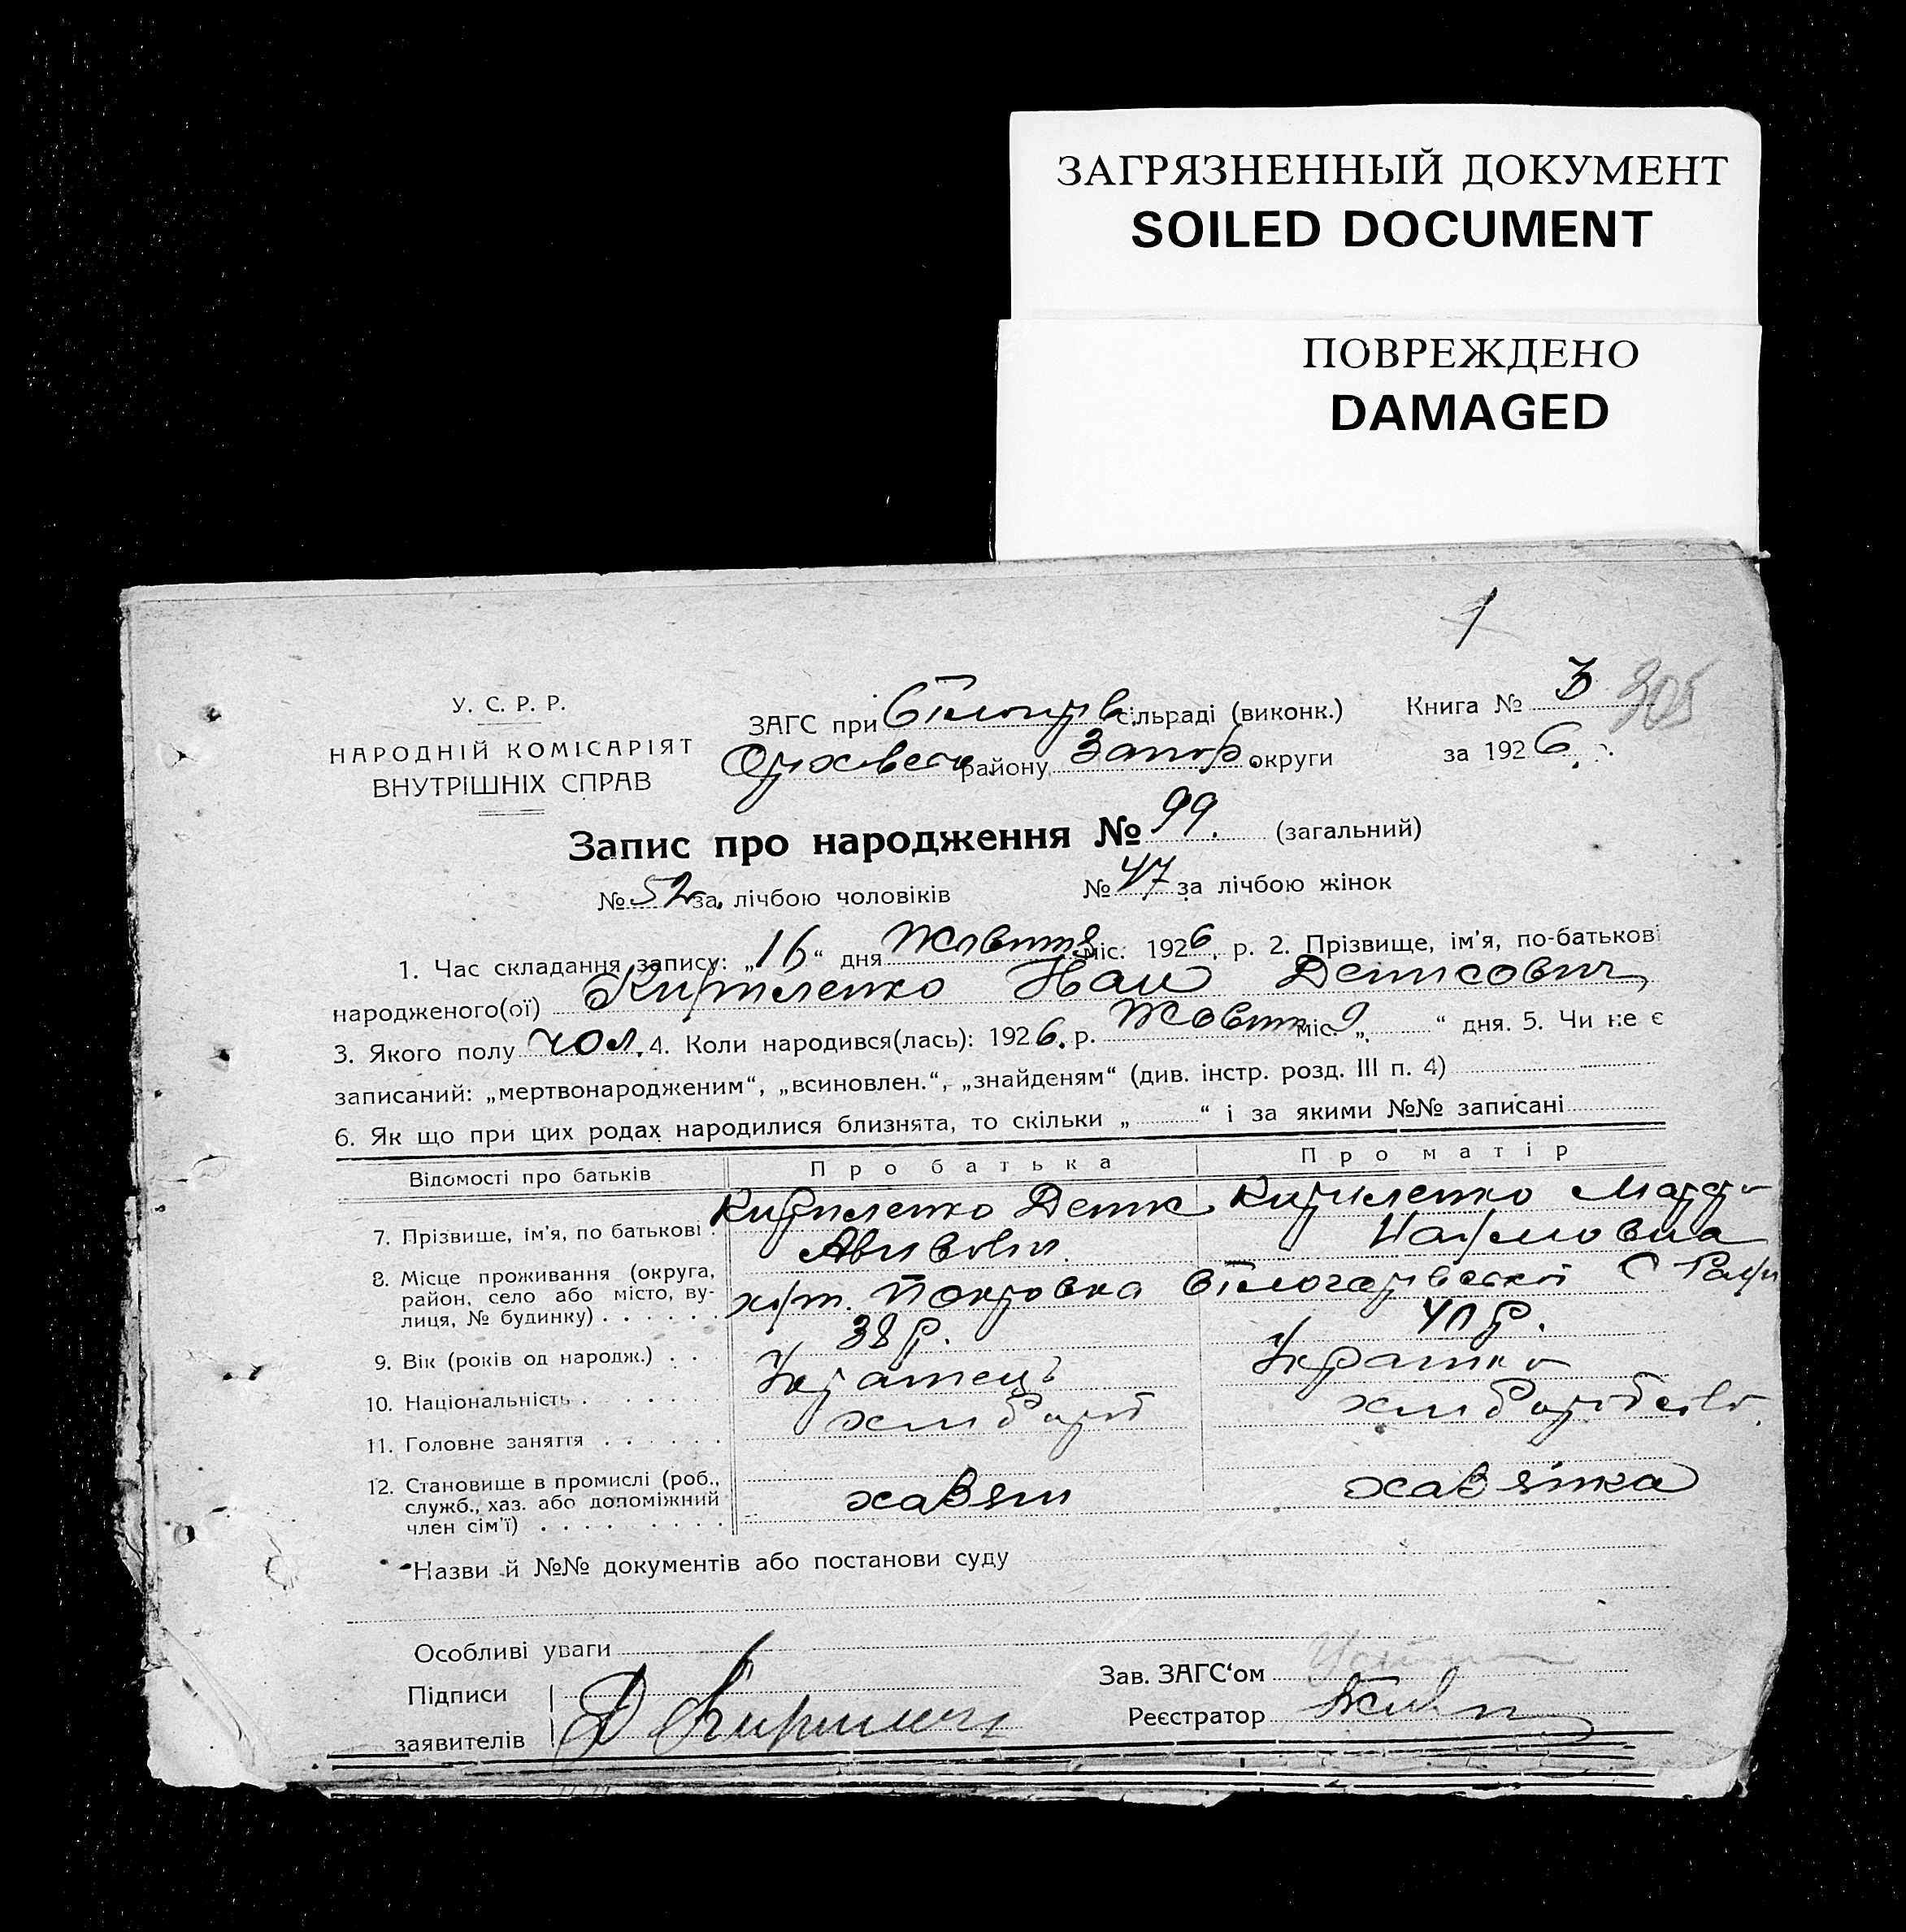 ЗАГРЯЗНЕННЫЙ ДОКУМЕНТ
SOILED DOCUMENT
ПОВРЕЖДЕНО
DAMAGED
1
У. С. Р. Р.
НАРОДНІЙ КОМІСАРІЯТ
ВНУТРІШНІХ СПРАВ
ЗАГС при сільраді (виконк.)
району Запор. округи
Книга № 3
305
за 1926 р.
Запис про народження № 99. (загальний)
№ 52 за лічбою чоловіків № 47 за лічбою жінок
1. Час складання запису: „16“ дня Жовтня міс. 1926. р. 2. Прізвище, ім'я, по-батькові
народженого(ої) Кириленко Іван Денисович
3. Якого полу чол. 4. Коли народився(лась): 1926. р. Жовтн міс. „9“ дня. 5. Чи не є
записаний: „мертвонародженим“, „всиновлен.“, „знайденям“ (див. інстр. розд. III п. 4)
6. Як що при цих родах народилися близнята, то скільки „ “ і за якими №№ записані
Відомості про батьків Про батька Про матір
7. Прізвише, ім'я, по батькові . Кириленко Денис Кириленко Марфа
Наумовна
8. Місце проживання (округа,
район, село або місто, ву-
лиця, № будинку) . . . . . . хут. Покровка Білогарівської С Ради
9. Вік (років од народж.) . . 38 р. 40 р.
10. Національність . . . . . Українець Українка
11. Головне заняття . . . . . . хлібороб хліборобство.
12. Становище в промислі (роб.,
служб., хаз. або допоміжний
член сім'ї) . . . . . . . . . хазяін хазяйка
Назви й №№ документів або постанови суду
Особливі уваги
Підписи
заявителів Д Кириленко
Зав. ЗАГС‘ом
Реєстратор